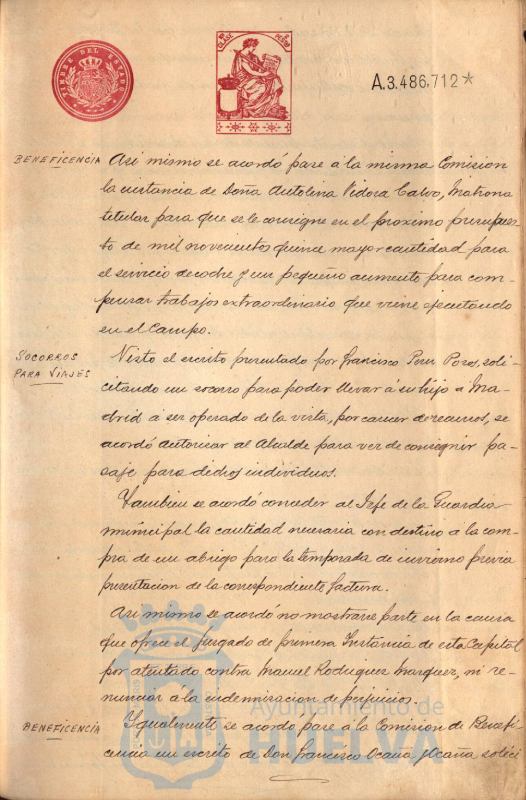 TIMBRE DEL ESTADO
A.3.486,712*
BENEFICENCIA
Asi mismo se acordó pase á la misma Comision
la instancia de Doña Antolina Vidosa Calvo, Matrona
titular para que se le consigne en el proximo presupues-
to de mil novecientos quince mayor cantidad para
el servicio de coche y un pequeño aumento para com-
pensar trabajos extraordinario que viene ejecutando
en el Campo.
SOCORROS
PARA VIAJES
Visto el escrito presentado por Francisco Perez Pozo, soli-
citando un socorro para poder llevar á su hijo á Ma-
drid á ser operado de la vista, por carecer de recursos, se
acordó autorizar al Alcalde para ver de conseguir pa-
saje para dichos individuos.
Tambien se acordó conceder al Jefe de la Guardia
municipal la cantidad necesaria con destino a la com-
pra de un abrigo para la temporada de invierno previa
presentacion de la correspondiente factura.
Asi mismo se acordó no mostrarse parte en la causa
que ofrece el Juzgado de primera Instancia de esta Capital
por atentado contra Manuel Rodriguez Marquez, ni re-
nunciar á la indemnizacion de perjuicios.
BENEFICENCIA
Igualmente se acordo pase á la Comision de Benefi-
cencia un escrito de Don Francisco Ocaña Ocaña solici
Ayuntamiento de
HUELVA